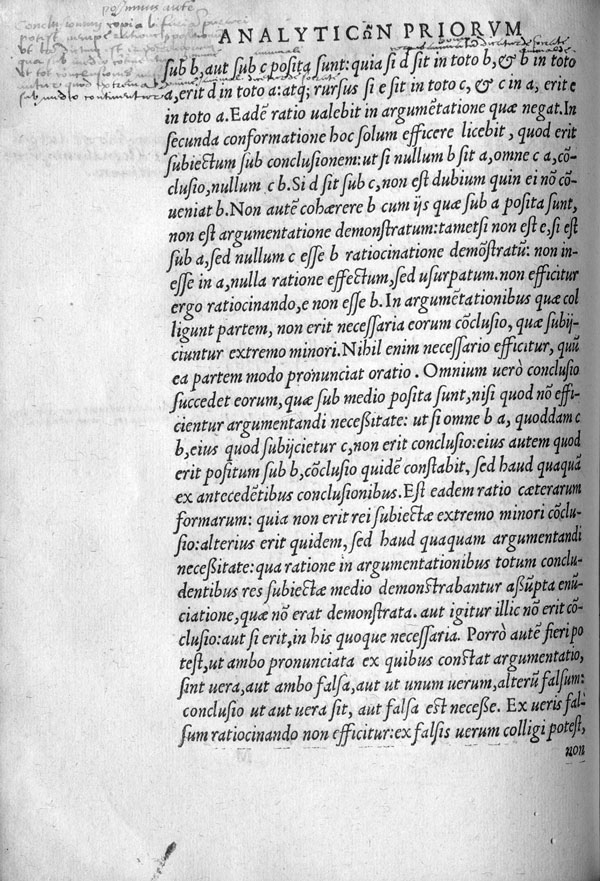 ANALYTICωñ PRIORVM
sub b, aut sub c posita sunt: quia si d sit in toto b, & b in toto
a, erit d in toto a: atq; rursus si e sit in toto c, & c in a, erit e
in toto a. Eadē ratio ualebit in argumētatione quæ negat. In
secunda conformatione hoc solum efficere licebit, quod erit
subiectum sub conclusionem: ut si nullum b sit a, omne c a, cō-
clusio, nullum c b. Si d sit sub c, non est dubium quin ei nō cō-
ueniat b. Non autē cohærere b cum ijs quæ sub a posita sunt,
non est argumentatione demonstratum: tametsi non est e, si est
sub a, sed nullum c esse b ratiocinatione demōstratū: non in-
esse in a, nulla ratione effectum, sed usurpatum. non efficitur
ergo ratiocinando, e non esse b. In argumētationibus quæ col
ligunt partem, non erit necessaria eorum cōclusio, quæ subij-
ciuntur extremo minori. Nihil enim necessario efficitur, quū
ea partem modo pronunciat oratio. Omnium uerò conclusio
succedet eorum, quæ sub medio posita sunt, nisi quod nō effi-
cientur argumentandi necessitate: ut si omne b a, quoddam c
b, eius quod subijcietur c, non erit conclusio: eius autem quod
erit positum sub b, cōclusio quidē constabit, sed haud quaquā
ex antecedētibus conclusionibus. Est eadem ratio cæterarum
formarum: quia non erit rei subiectæ extremo minori cōclu-
sio: alterius erit quidem, sed haud quaquam argumentandi
necessitate: qua ratione in argumentationibus totum conclu-
dentibus res subiectæ medio demonstrabantur assūpta enū-
ciatione, quæ nō erat demonstrata. aut igitur illic nō erit cō-
clusio: aut si erit, in his quoque necessaria. Porrò autē fieri po
test, ut ambo pronunciata ex quibus constat argumentatio,
sint uera, aut ambo falsa, aut ut unum uerum, alterū falsum:
conclusio ut aut uera sit, aut falsa est necesse. Ex ueris fal-
sum ratiocinando non efficitur: ex falsis uerum colligi potest,
non